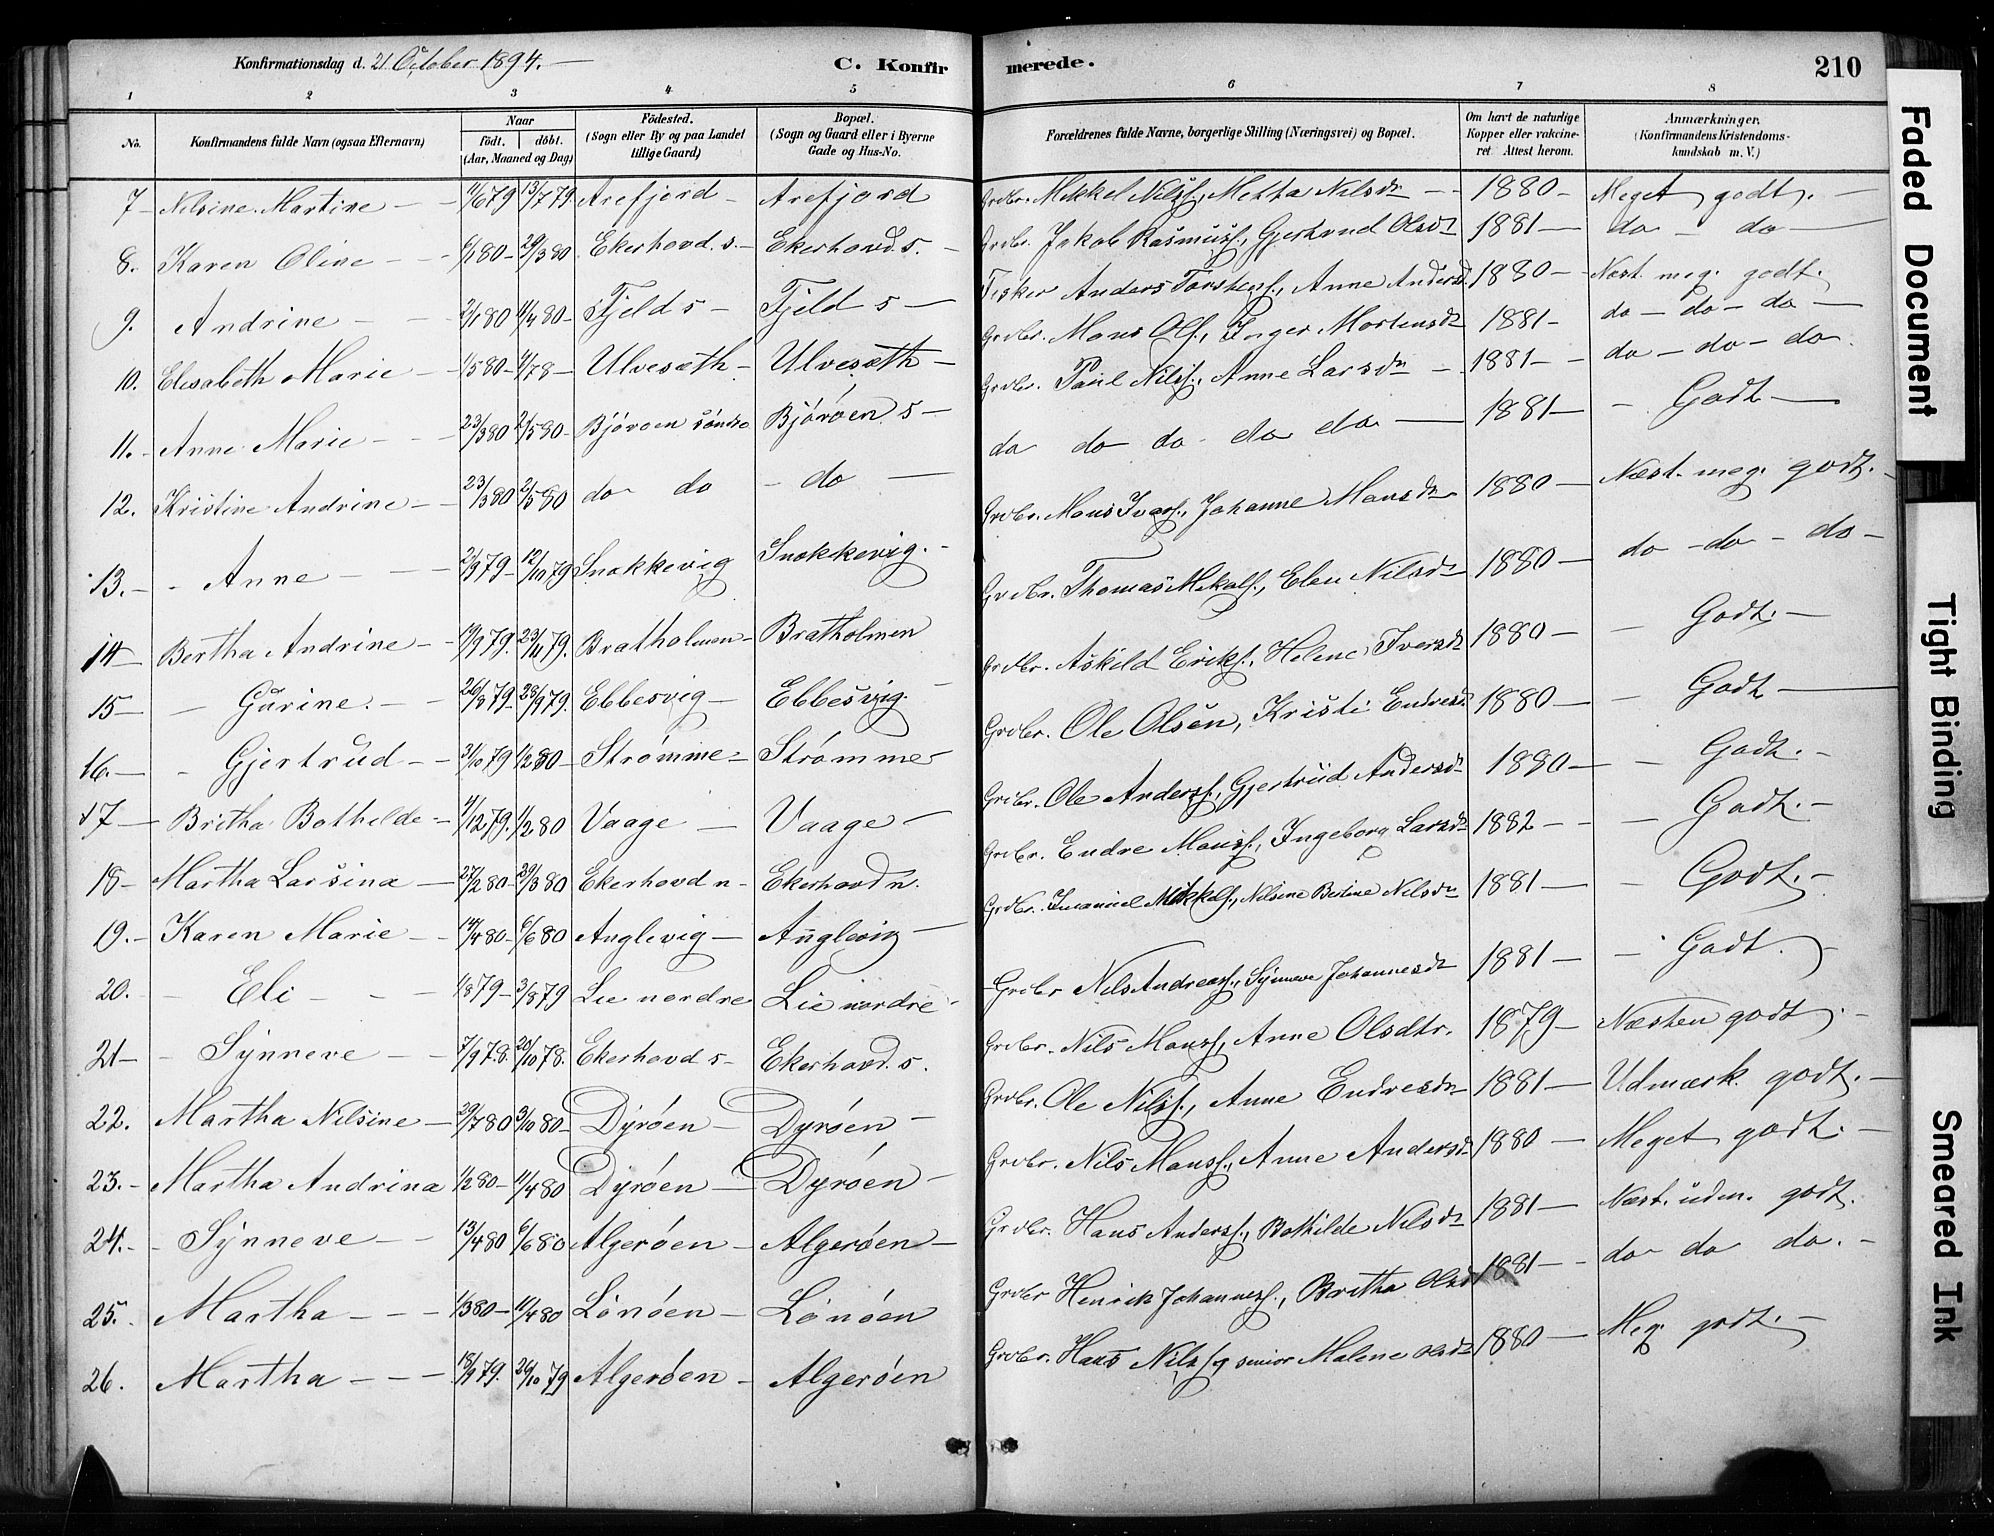 Konfirmationsdag d. 21 October 1894. C. Konfir merede. 210
1 2 3 4 5 6 7 8
No. Konfirmandens fulde Navn (ogsaa Efternavn) Naar födt. döbt. (Aar, Maaned og Dag) Födested. (Sogn eller By og paa Landet tillige Gaard) Bopæl. (Sogn og Gaard eller i Byerne Gade og Hus-No. Forældrenes fulde Navne, borgerlige Stilling (Næringsvei) og Bopæl. Om havt de naturlige Kopper eller vakcineret. Attest herom. Anmærkninger. (Konfirmandens Kristendomskundskab m. V.)
7 - Nilsine Martine - - 11/6 79 13/7 79 Arefjord - Arefjord Grdbr. Mikkel Nilss., Metta Nilsdr - - 1880 - Meget godt. -
8. Karen Oline - - 6/1 80 - 29/3 80 Ekerhovd s. - Ekerhovd s. - Grdbr. Jakob Rasmuss., Gjertrud Olsdr 1881 - do - do -
9. Andrine - - 2/1 80 4/4 80 - Fjeld s - Fjeld s - Fisker Anders Torstens., Anne Andersd. 1880 - Næst. meg. godt.
10. Elisabeth Marie - 1/5 80 - Ulvesæth - Ulvesæth - Grdbr. Mons Ols., Inger Mortensdr 1881 - do - do - do -
11. - Anne Marie - - 23/3 80 2/5 80 - Björöen söndre Björöen s - Grdbr. Paul Nilss., Anne Larsdr - 1881 - - do - do - do.
12. Kristine Andrine - - 23/3 80 2/5 80 do do - do - do do do do do. - 1881 - - Godt -
13. - - Anne - - 2/9 79 - 12/10 79 Snekkevig Snekkevig. - Grdbr. Mons Ivers., Johanne Monsdr 1880 - Næst. meg. godt. -
14 - Bertha Andrine - 19/9 79. 23/11 79. Bratholmen - Bratholmen Grdbr. Thomas Mikals., Elen Nilsdr 1880 - do - do - do -
15 - - Gurine. - - 26/8 79 - 28/9 79. Ebbesvig - Ebbesvig. - Grdbr. Askild Eriks., Helene Iversdr 1880 - - Godt. -
16. - - Gjertrud - - 31/10 79 1/2 80 - Strømme - Strømme - Grdbr. Ole Olsen, Kristi Endresd. 1880 - - Godt -
17 - Britha Bothilde - 4/12 79. 1/2 80 Vaage - Vaage - Grdbr. Ole Anderss., Gjertrud Andersdr 1880 - - Godt. -
18 - Martha Larsina - 27/2 80 - 29/3 80 Ekerhovd n - Ekerhovd n. Grdbr. Endre Monss., Ingeborg Larsdr 1882 - - - Godt. -
19. - Karen Marie - - 14/4 80 - 6/6 80 Anglevig - Anglevig - Grdbr. Imanuel Mikkels., Nilsine Berine Nilsdr 1881 - - Godt. -
20. - Eli - - 79 - 31/8 79 Lie nordre Lie nordre - Grdbr Nils Andreass., Synneve Johannesdr 1881 - - Godt. -
21 - - Synneve - - 7/9 78. 20/10 78. Ekerhovd s - Ekerhovd. s. Grdbr. Nils Monss., Anne Olsdtr. 1879 - Næsten godt. -
22. Martha Nilsine - 29/7 80 3/10 80 - Dyröen - Dyröen - Grdbr. Ole Nilss., Anne Endresdr 1881 - Udmærk. godt. -
23. - Martha Andrina 1/2 80 - 11/4 80 Dyröen - Dyröen - Grdbr. Nils Monss., Anne Andersdr 1880 - Meget godt. -
24. - - Synneve - - 13/4 80 6/6 80 Algeröen - Algeröen - Grdbr. Hans Anderss., Bothilde Nilsdr 1881 - Næst. udm. godt.
25. Martha - - - 1/3 80 - 11/4 80 Lönöen - Lönöen Grdbr Henrik Johanness., Britha Olsdr 1881 - - do do do. -
26. Martha - - - 18/9 79. 26/10 79 Algeröen - Algeröen Grdbr. Hans Nilss. senior Malene Olsdr 1880 - Meg. godt. -
Faded Document
Tight Binding
Smeared Ink